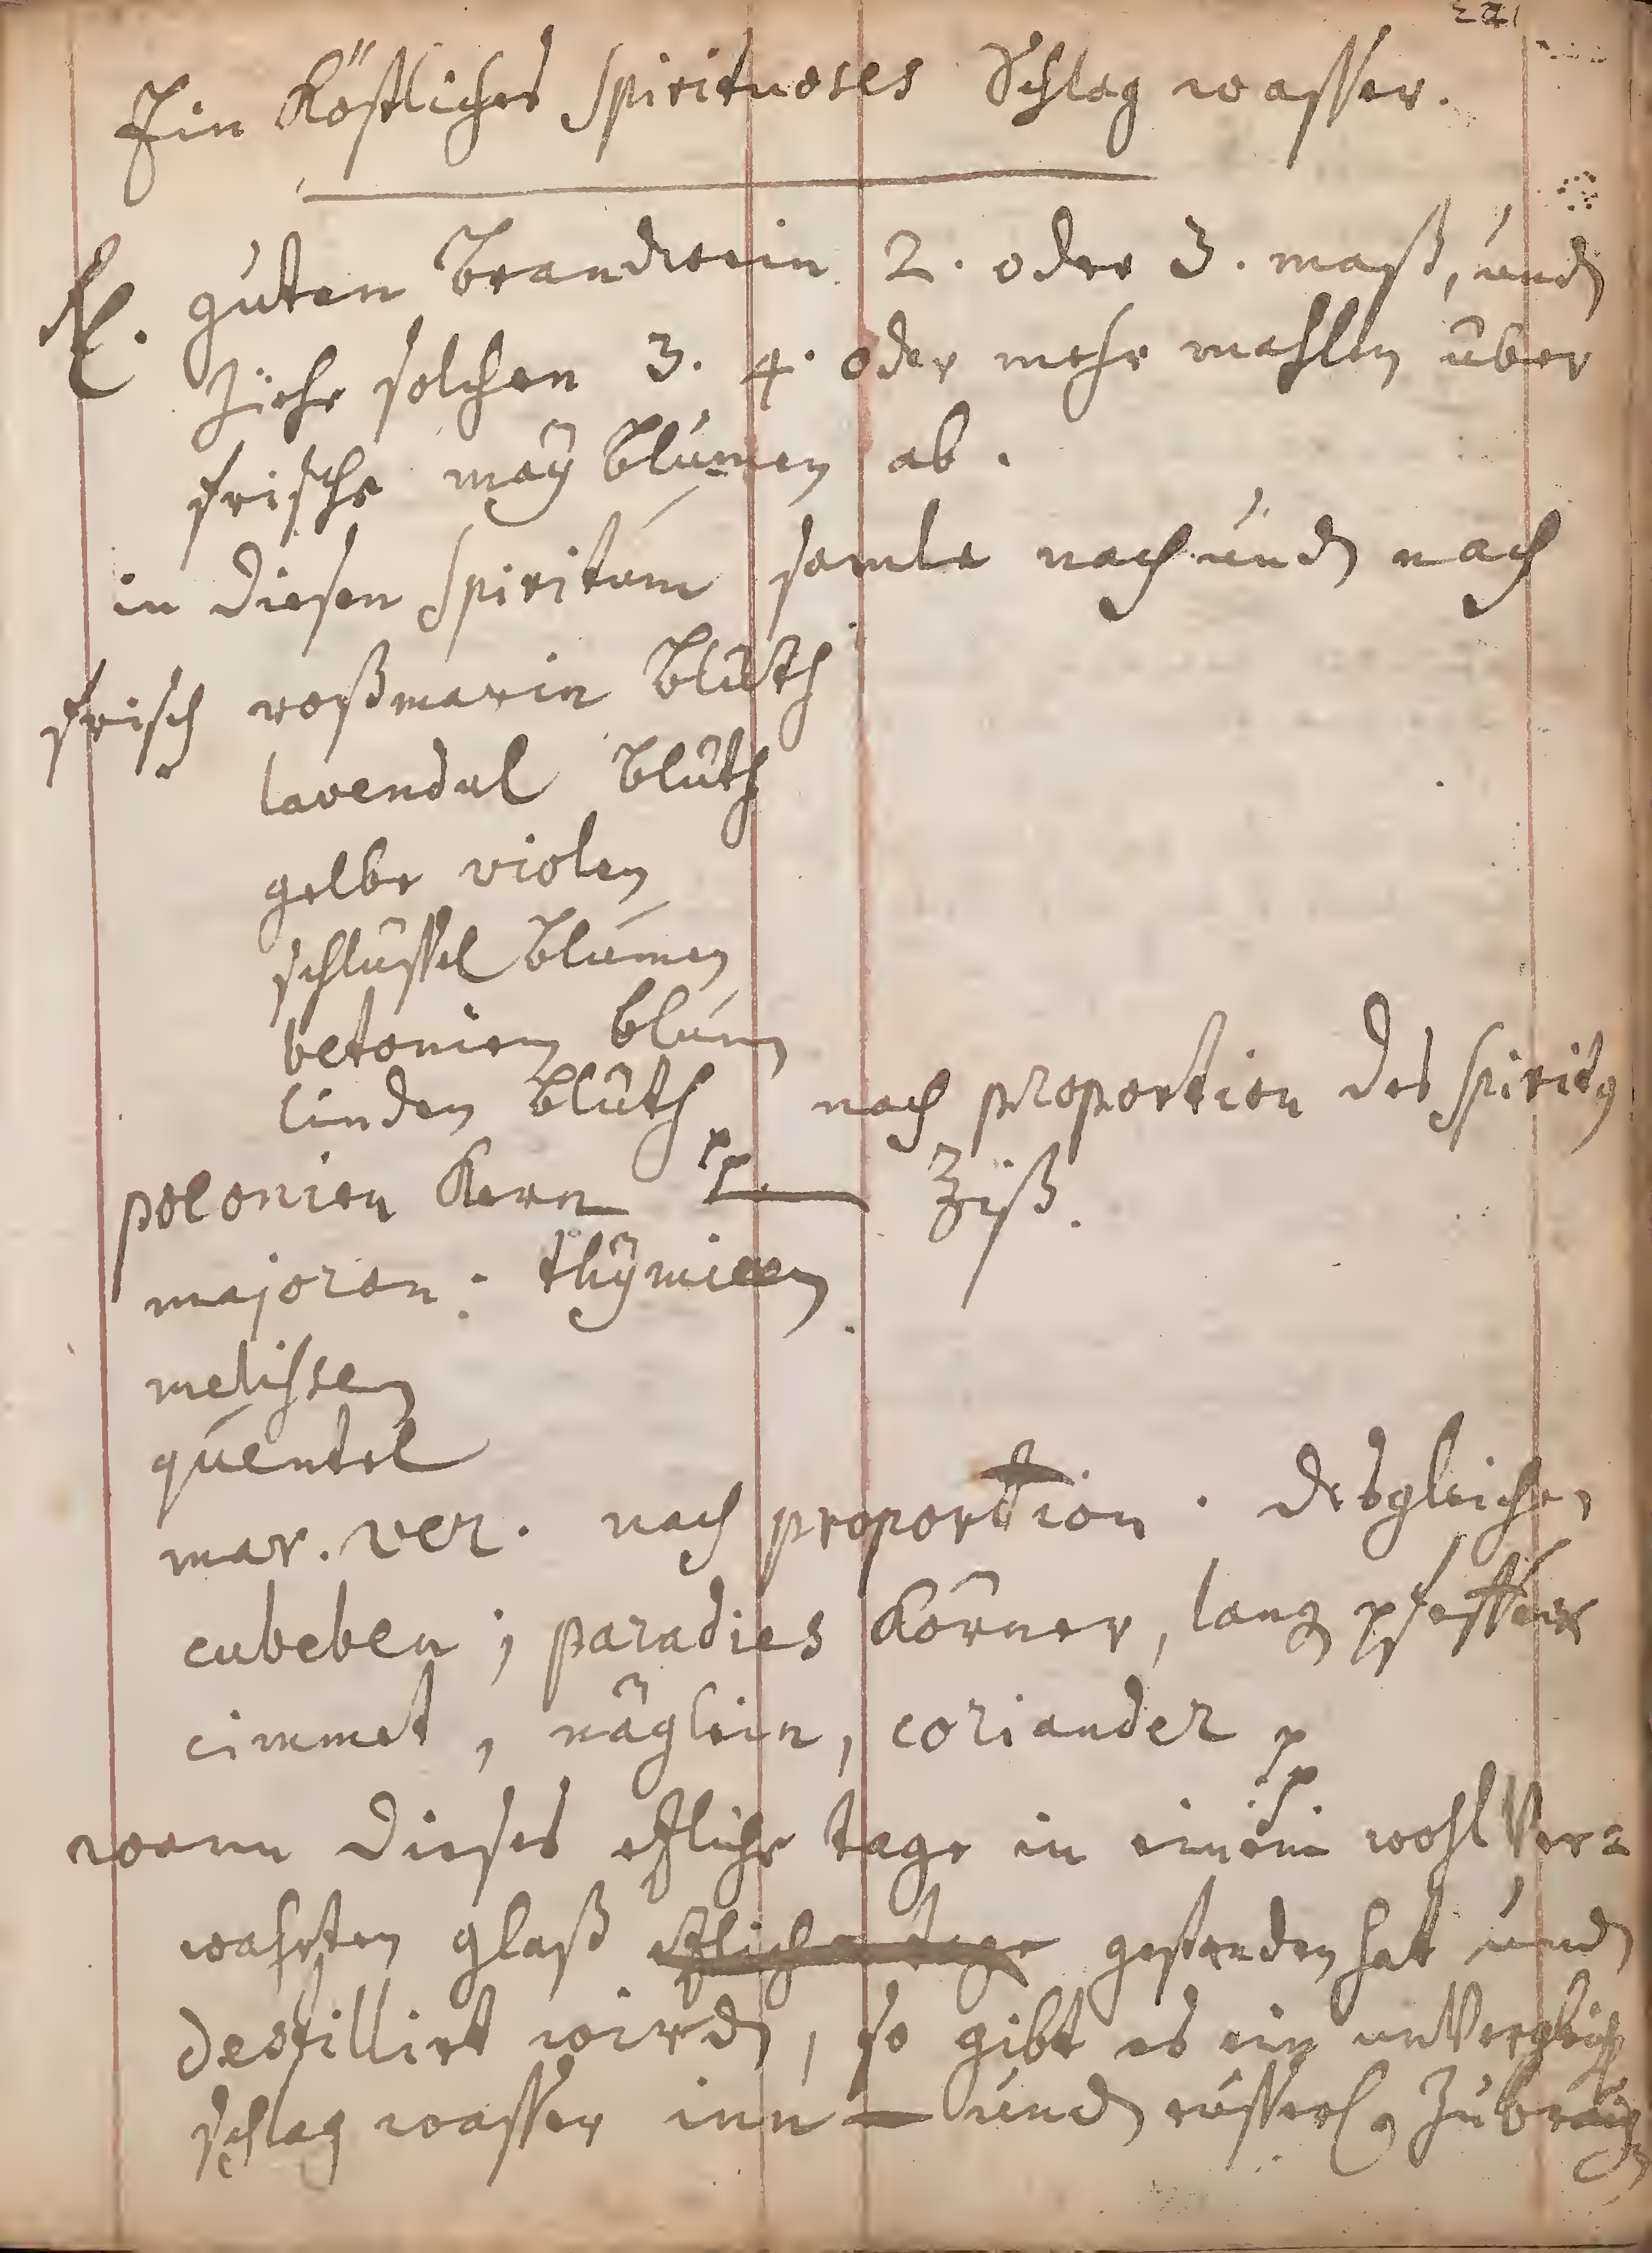 221
Ein Köstliches spirituoses Schlag wasser.
Rx. guten Brandwein 2. oder 3. maß, und
Ziehe solchen 3. 4. oder mehr mahlen über
frische maÿ Blumen ab.
in diesen Spiritum samle nach und nach
frisch roßmarin Blüth
lavendul Blüth
gelbe violen
schlüssel Blumen
betonien blum
linden Blüth nach proportion des spiritus
polonien Kern pp. Ziß.
majoran. thÿmian
melissen
quentel
mar. ver. nach proportion. desgleichen
cubeben, paradies Körner, lang pfeffer
cimmet, näglein, coriander pp
wann dieses etliche tage in einem wohl Ver=
wahrten glaß etliche tage gestanden hat und
destillirt wird, so gibt es ein unVergleich
schlag wasser inn- und eüsserl. Zu brauchen